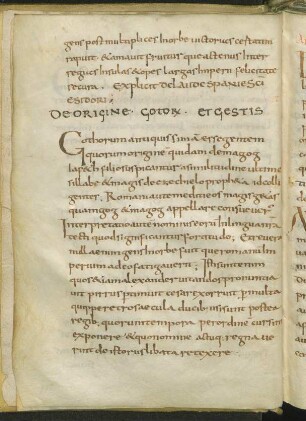 gens post multiplices in orbe victorias certatim
rapuit & amavit fruitur que actenus inter
regias infulas & opes largas imperii felicitate
secura . Explicit de laude spaniae sci
esidori
DE ORIGINE . GOTOR . ET GESTIS
Gothorum antiquissimam esse gentem
quorum origine quidam de magog
iapeth filio suspicantur a similitudine ultime
sillabe & magis de ezechielo propheta id colli
gentes . Romana autem eruditio magis getas
quam gog & magog appellare consuevit
Interpretatio autem nominis eorum in lingua nra
tecti quod significantur fortitudo , Et re vera
nulla enim gens in orbe fuit que romanum im
perium adeo fatigaverit . Isti sunt enim
quos etiam alexander vitandos pronuntia
vit pirrus pertimuit cesar exorruit , p multa
quippe retro saecula ducib; usi sunt postea
regib; quorum tempora per ordine cursim
exponere & quo nomine actuq; regnave
rint de istoriis libata retexere